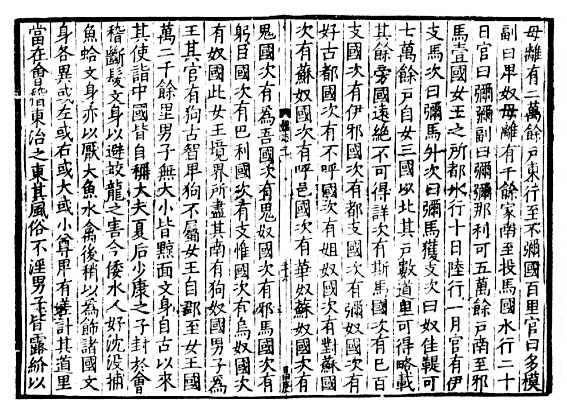 母離有二萬餘戶東行至不彌國百里官曰多模
副曰卑奴母離有千餘家南至投馬國水行二十
日官曰彌彌副曰彌彌那利可五萬餘戶南至邪
馬壹國女王之所都水行十日陸行一月官有伊
支馬次曰彌馬升次曰彌馬獲支次曰奴佳鞮可
七萬餘戶自女王國以北其戶數道里可得略載
其餘旁國遠絕不可得詳次有斯馬國次有已百
支國次有伊邪國次有都支國次有彌奴國次有
好古都國次有不呼國次有姐奴國次有對蘇國
次有蘇奴國次有呼邑國次有華奴蘇奴國次有
鬼國次有為吾國次有鬼奴國次有邪馬國次有
躬臣國次有巴利國次有支惟國次有烏奴國次
有奴國此女王境界所盡其南有狗奴國男子為
王其官有狗古智卑狗不屬女王自郡至女王國
萬二千餘里男子無大小皆黥面文身自古以來
其使詣中國皆自稱大夫夏后少康之子封於會
稽斷髮文身以避蛟龍之害今倭水人好沈沒捕
魚蛤文身亦以厭大魚水禽後稍以為飾諸國文
身各異或左或右或大或小尊卑有差計其道里
當在會稽東治之東其風俗不淫男子皆露紒以